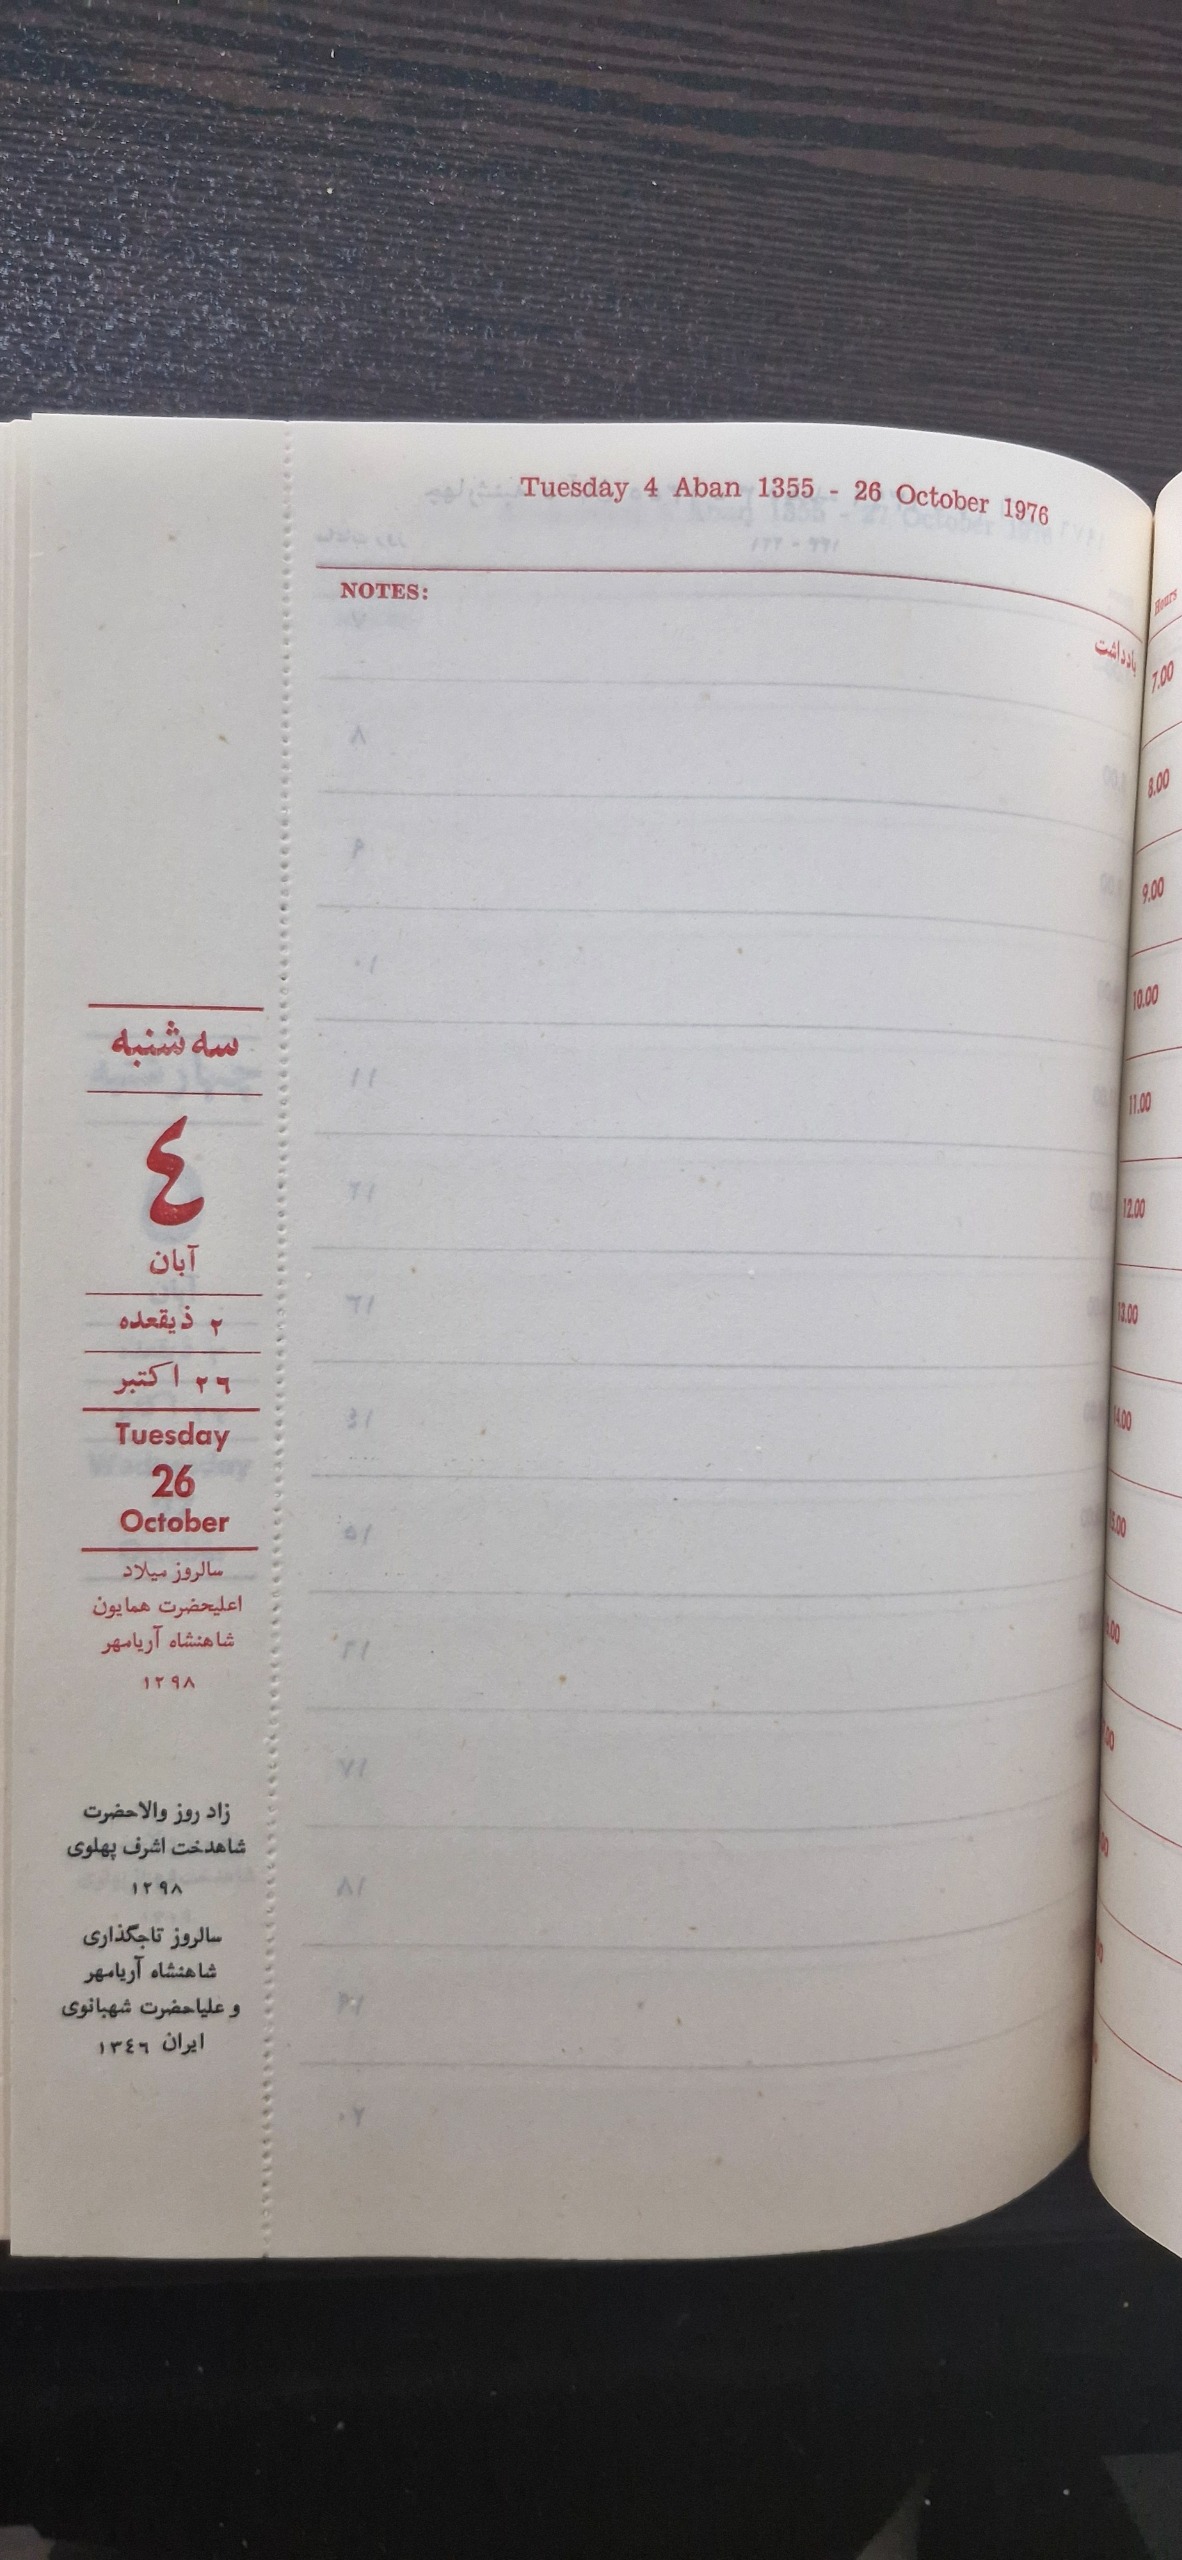 Tuesday 4 Aban 1355 - 26 October 1976
NOTES:
یادداشت
سه شنبه
٤
آبان
٢ ذیقعده
٢٦ اکتبر
Tuesday
26
October
سالروز میلاد
اعلیحضرت همایون
شاهنشاه آریامهر
١٢٩٨
زاد روز والاحضرت
شاهدخت اشرف پهلوی
١٢٩٨
سالروز تاجگذاری
شاهنشاه آریامهر
و علیاحضرت شهبانوی
ایران ١٣٤٦
Hours
7.00
8.00
9.00
10.00
11.00
12.00
13.00
14.00
15.00